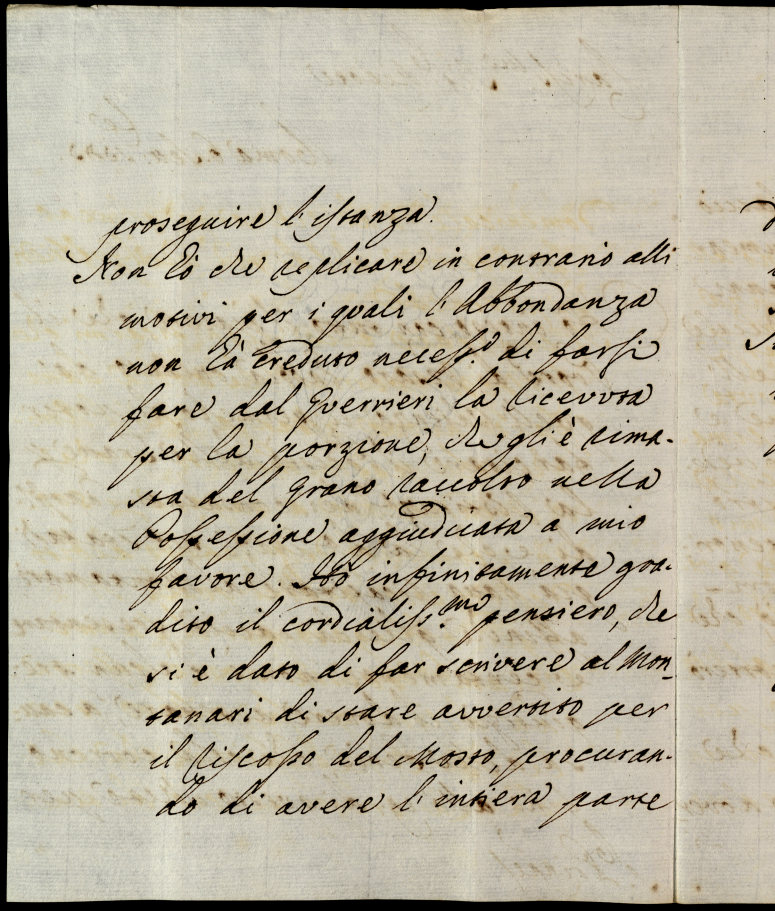 proseguire l'istanza.
Non hò che replicare in contrario alli
motivi per i quali l'Abbondanza
non hà creduto necess.o di farsi
fare dal Guerrieri la ricevuta
per la porzione, che gli è rima-
sta del grano raccolto nella
Possessione aggiudicata a mio
favore. Hò infinitamente gra-
dito il cordialiss.mo pensiero, che
si è dato di far scrivere al Mon-
tanari di stare avvertito per
il riscosso del Mosto, procuran-
do di avere l'intiera parte